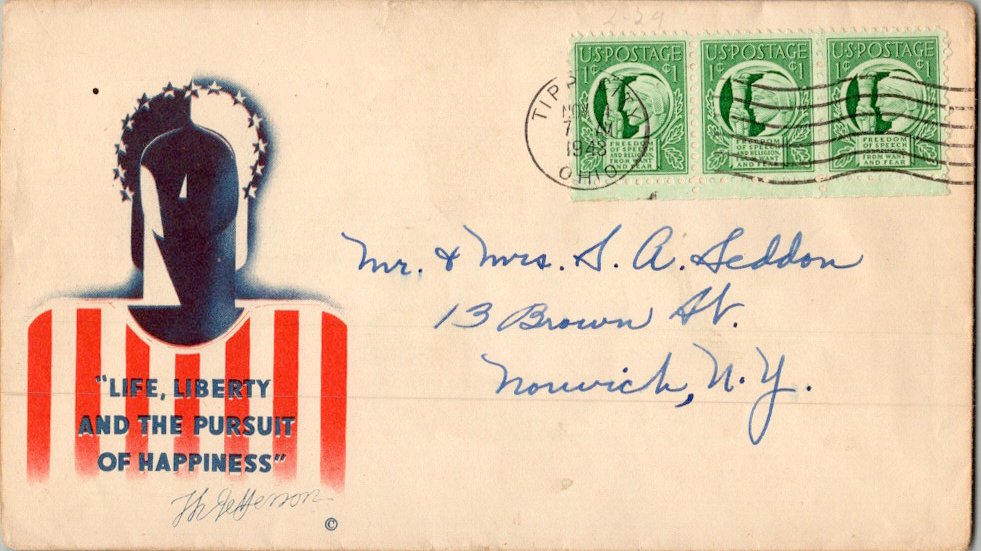 2-29
U.S. POSTAGE
1¢ ¢1
FREEDOM
OF SPEECH
AND RELIGION,
FROM WANT
AND FEAR
U.S. POSTAGE
1¢ ¢1
FREEDOM
OF SPEECH
AND RELIGION,
FROM WANT
AND FEAR
U.S. POSTAGE
1¢ ¢1
FREEDOM
OF SPEECH
AND RELIGION,
FROM WANT
AND FEAR
NOV
1943
OHIO
Mr. & Mrs. S. A. Seddon
13 Brown St.
Norwich, N.Y.
"LIFE, LIBERTY
AND THE PURSUIT
OF HAPPINESS"
Th Jefferson
©